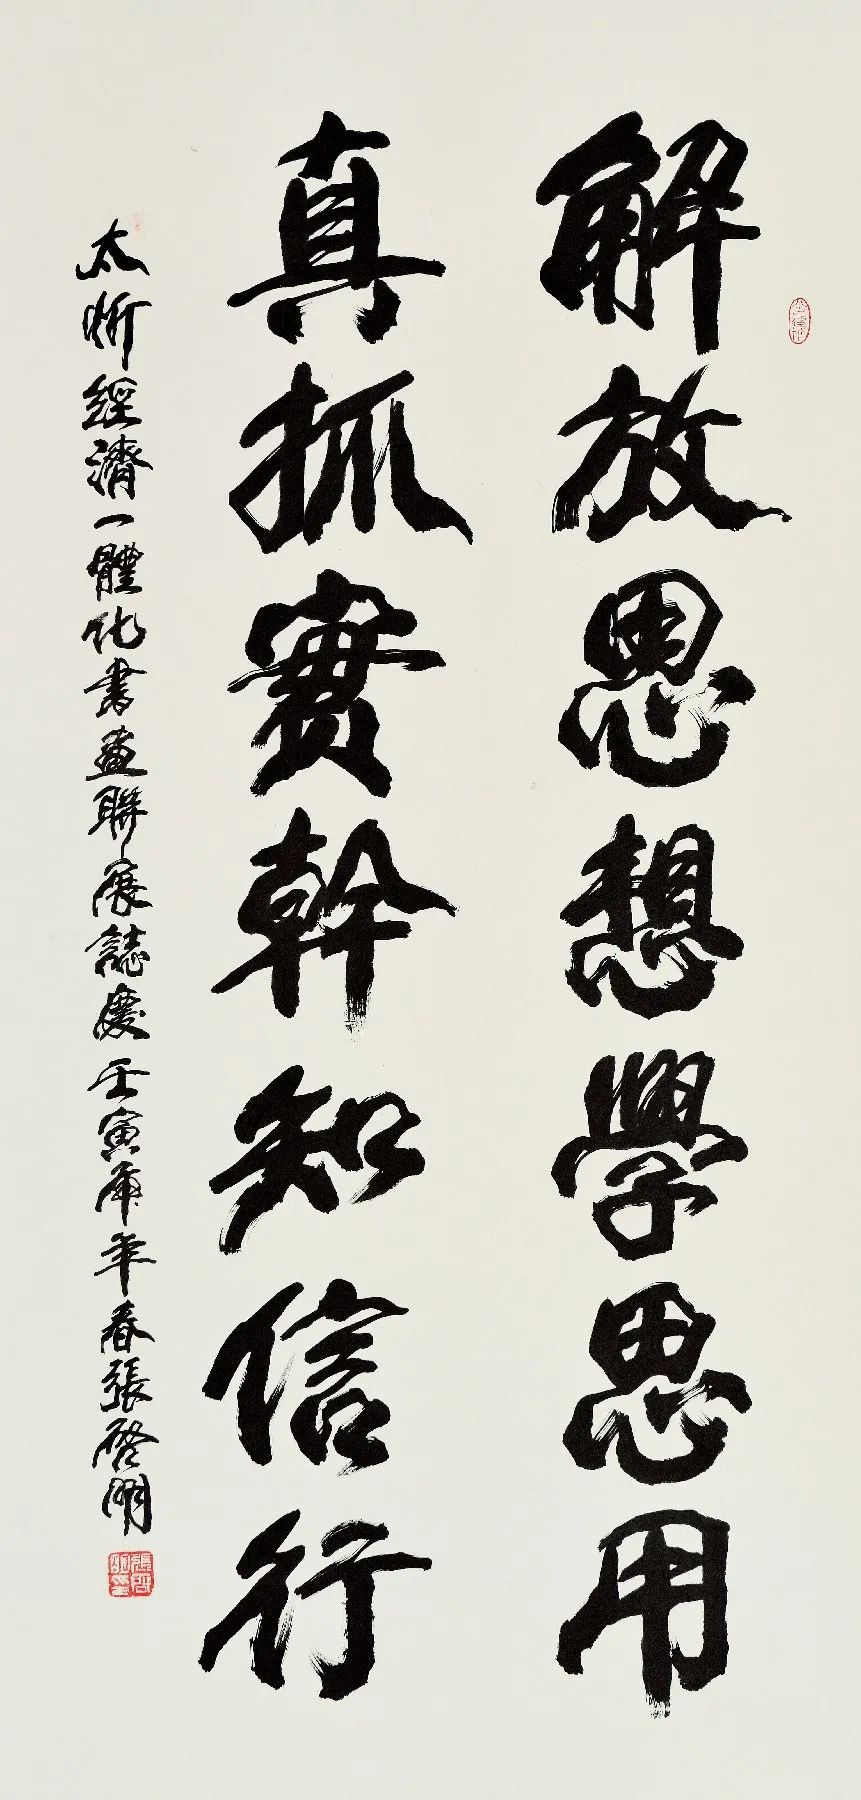 解放思想學思用
真抓實幹知信行
太忻經濟一體化書畫聯展誌慶壬寅虎年春張啓明